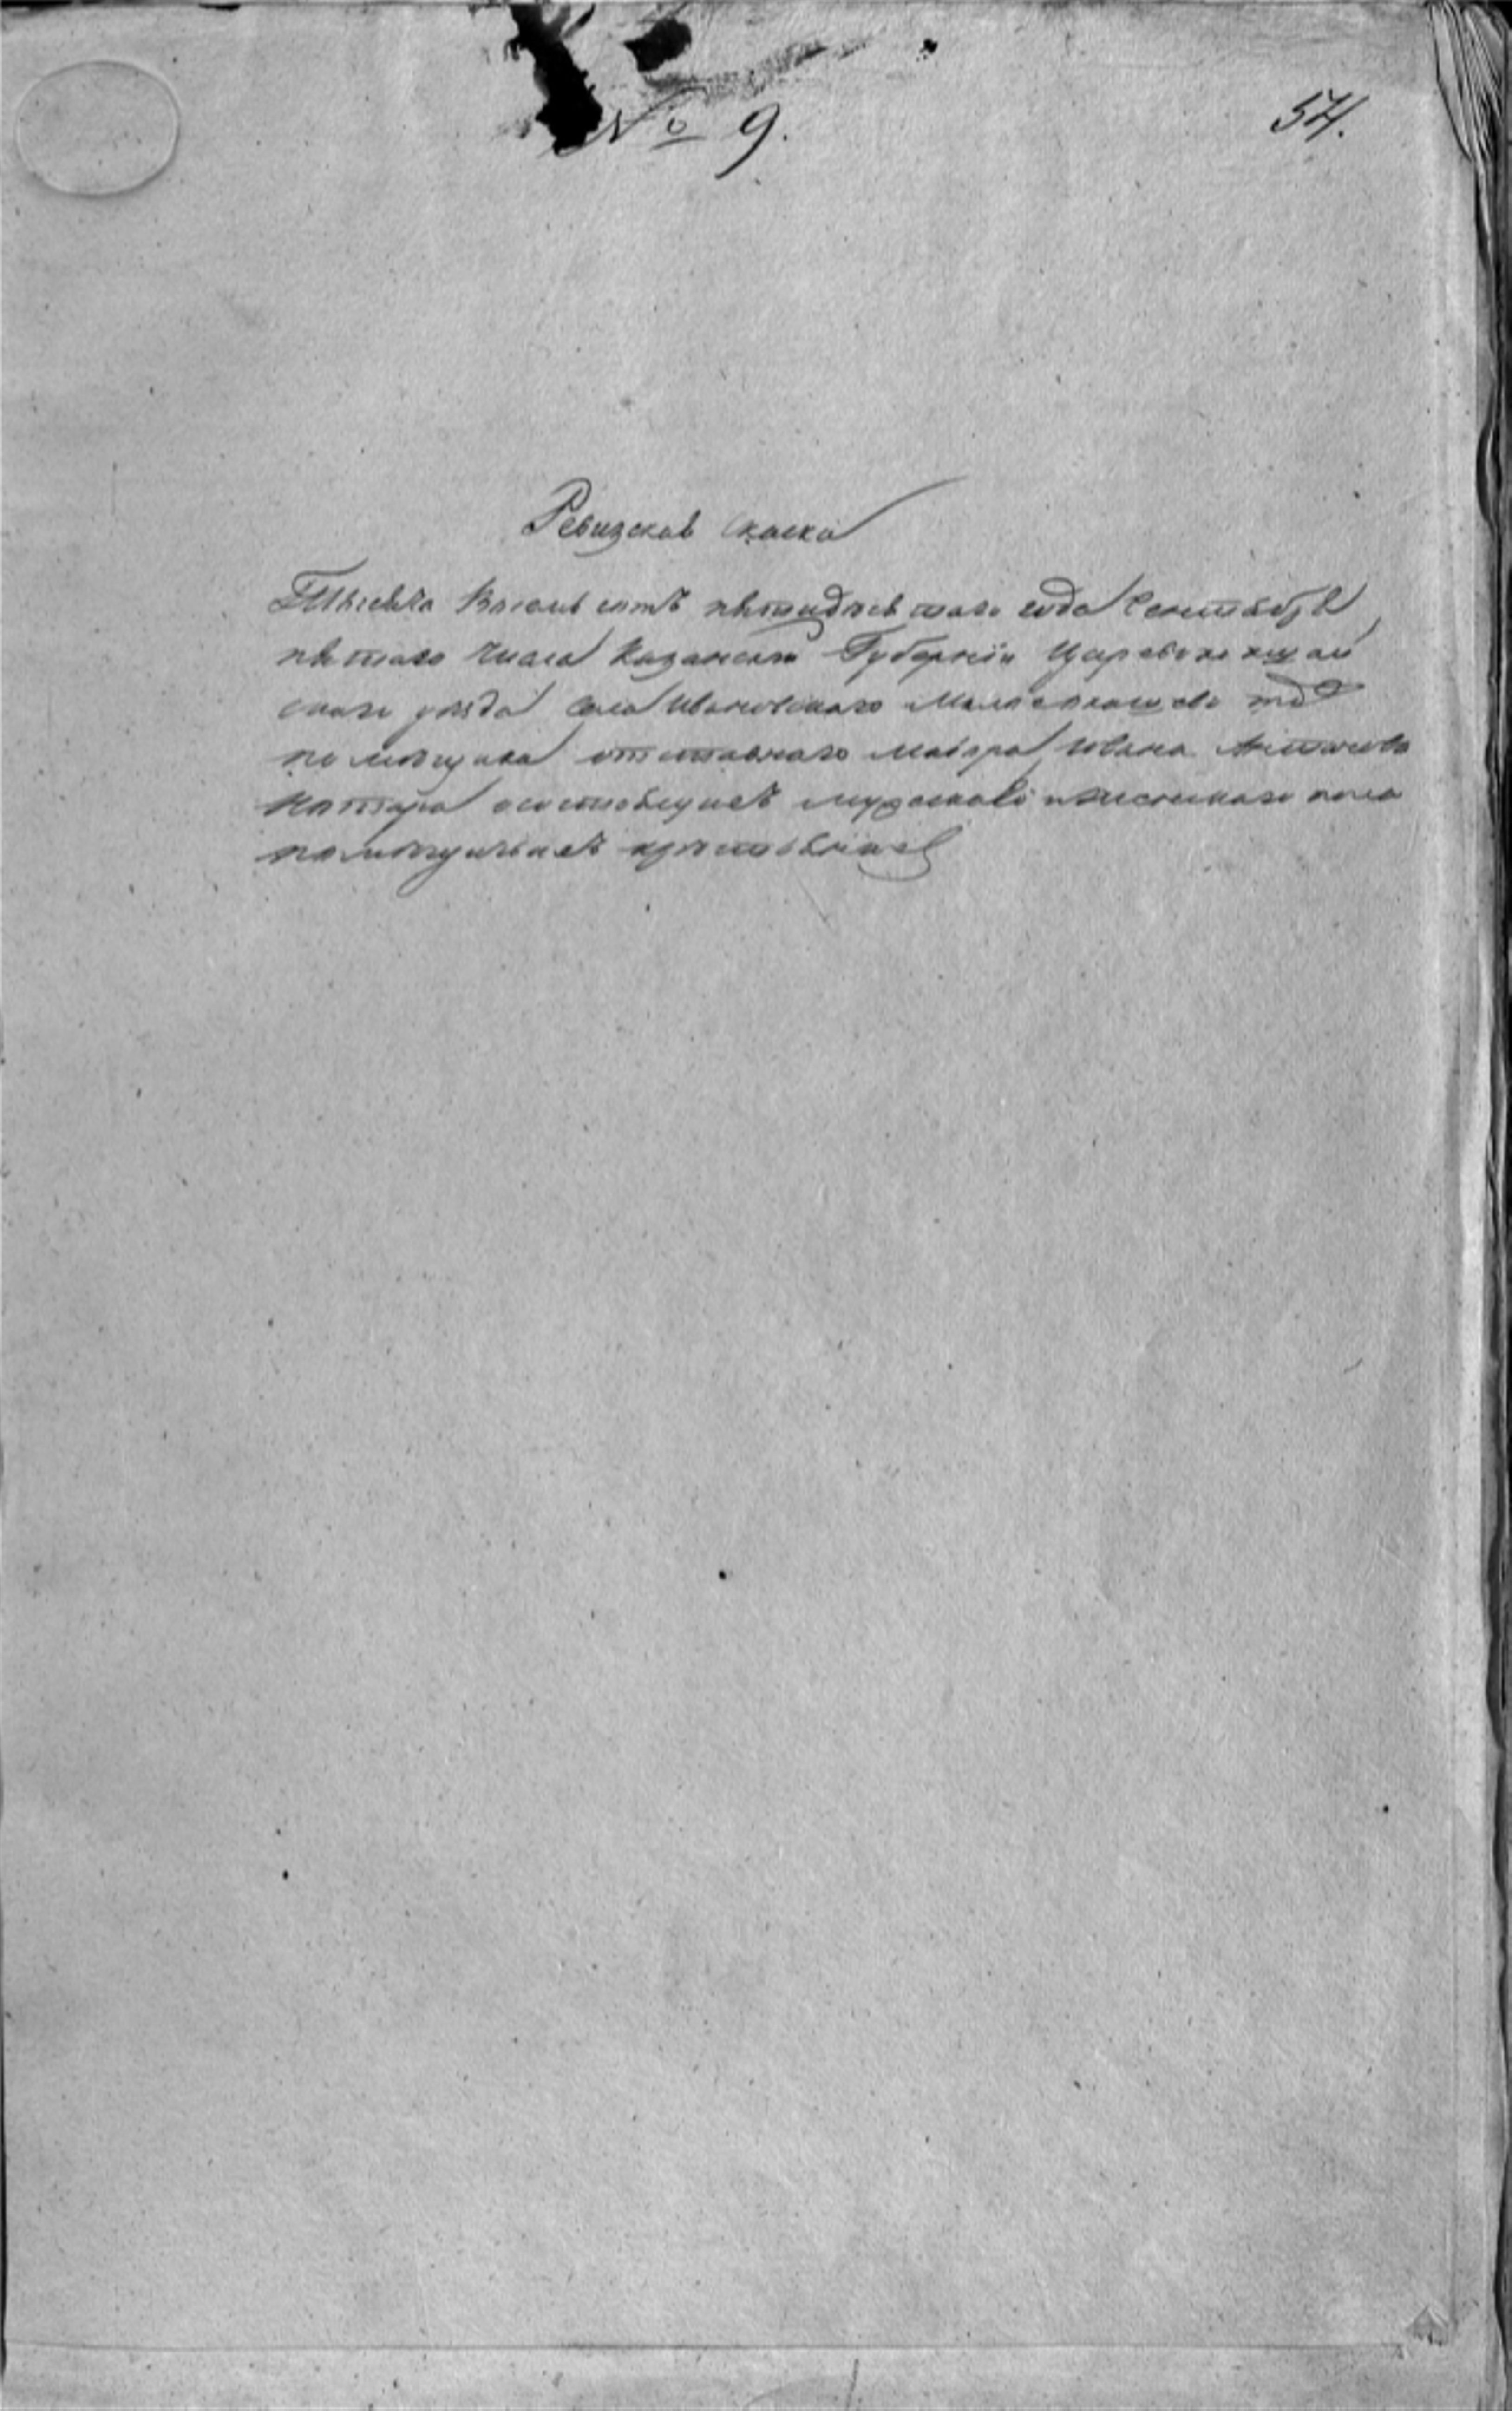 № 9.
54.
Ревизская Скаска
Тысяча Восемь сотъ пятидесятаго года Сентября
пятаго числа Казанской Губернiи Царевококшай
скаго уѣзда Села Ивановскаго
помещика отставнаго маiора Ивана
о состоящихъ мужскаго и женскаго пола
помещичьихъ крестьянахъ